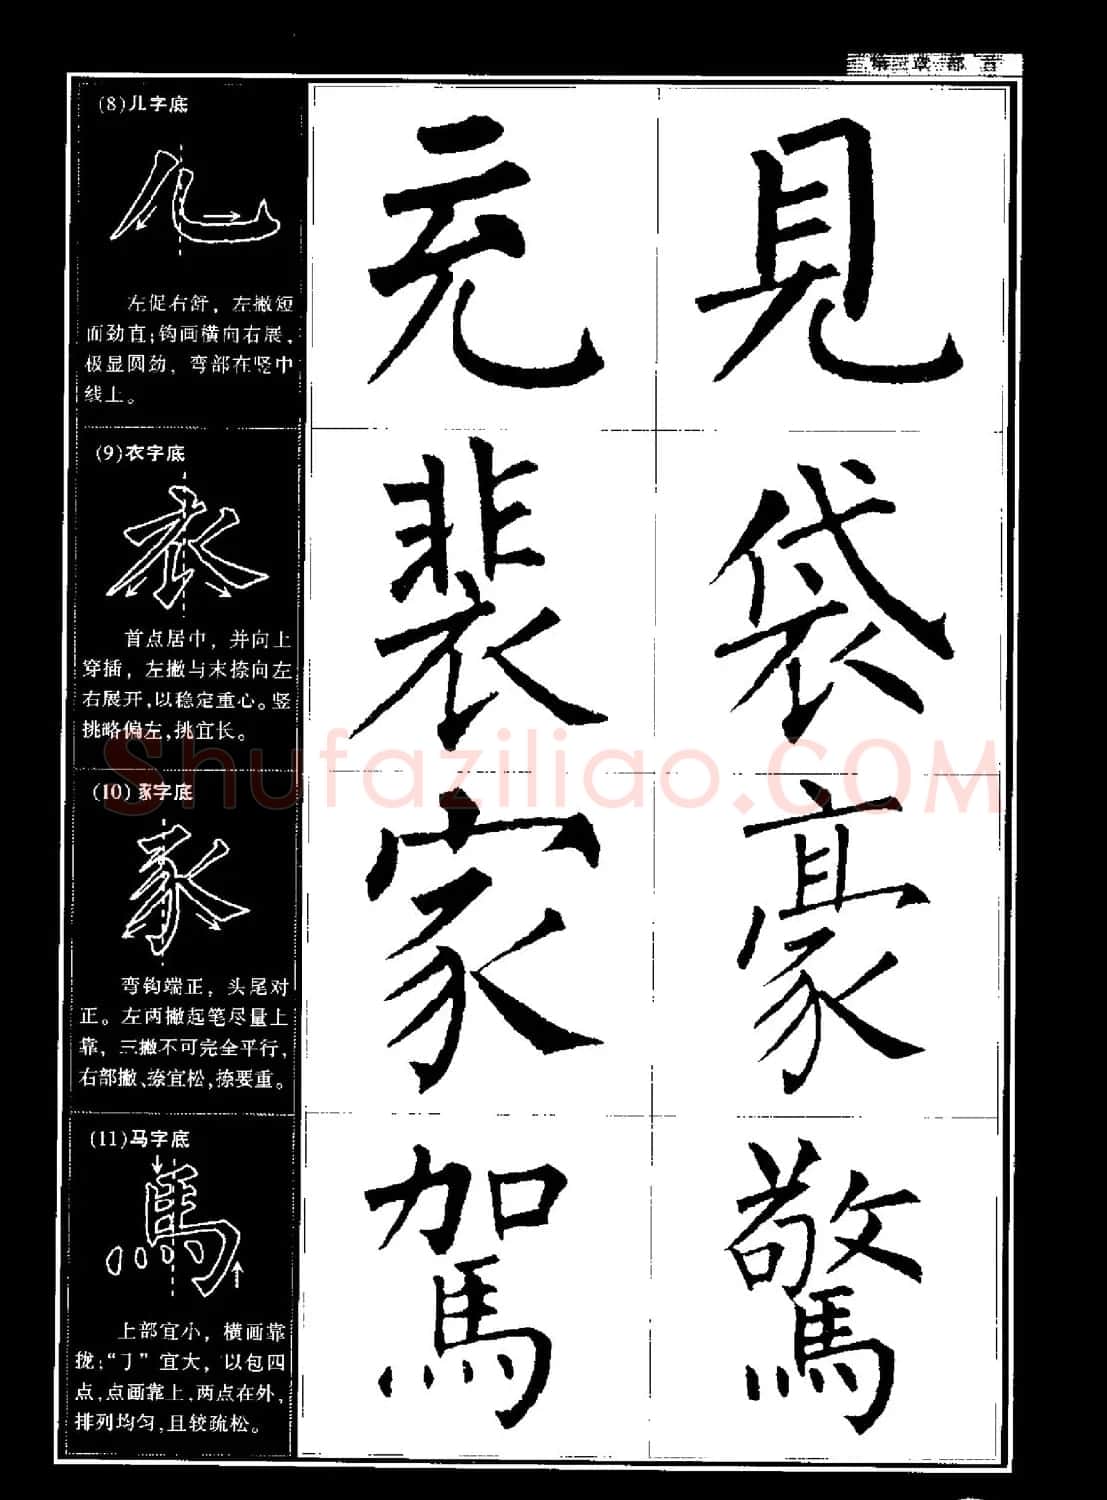 章部首
(8)儿字底
左促右舒，左撇短
而劲直；钩画横向右展，
极显圆劲，弯部在竖中
线上。
充見
(9)衣字底
首点居中，并向上
穿插，左撇与末捺向左
右展开，以稳定重心。竖
挑略偏左，挑宜长。
裴袋
Shufaziliao.COM
(10)豕字底
弯钩端正，头尾对
正。左两撇起笔尽量上
靠，三撇不可完全平行，
右部撇、捺宜松，捺要重。
家豪
(11)马字底
上部宜小，横画靠
拢；“㇆”宜大，以包四
点，点画靠上，两点在外，
排列均匀，且较疏松。
駕驚